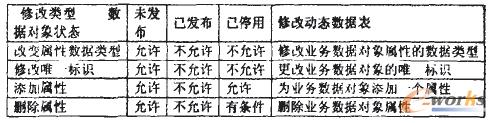 修改类型 数据对象状态 未发布 已发布 已停用 修改动态数据表
改变属性数据类型 允许 不允许 不允许 修改业务数据对象属性的数据类型
修改唯一标识 允许 不允许 不允许 更改业务数据对象的唯一标识
添加属性 允许 不允许 允许 为业务数据对象添加一个属性
删除属性 允许 不允许 有条件 删除业务数据对象属性
e-works